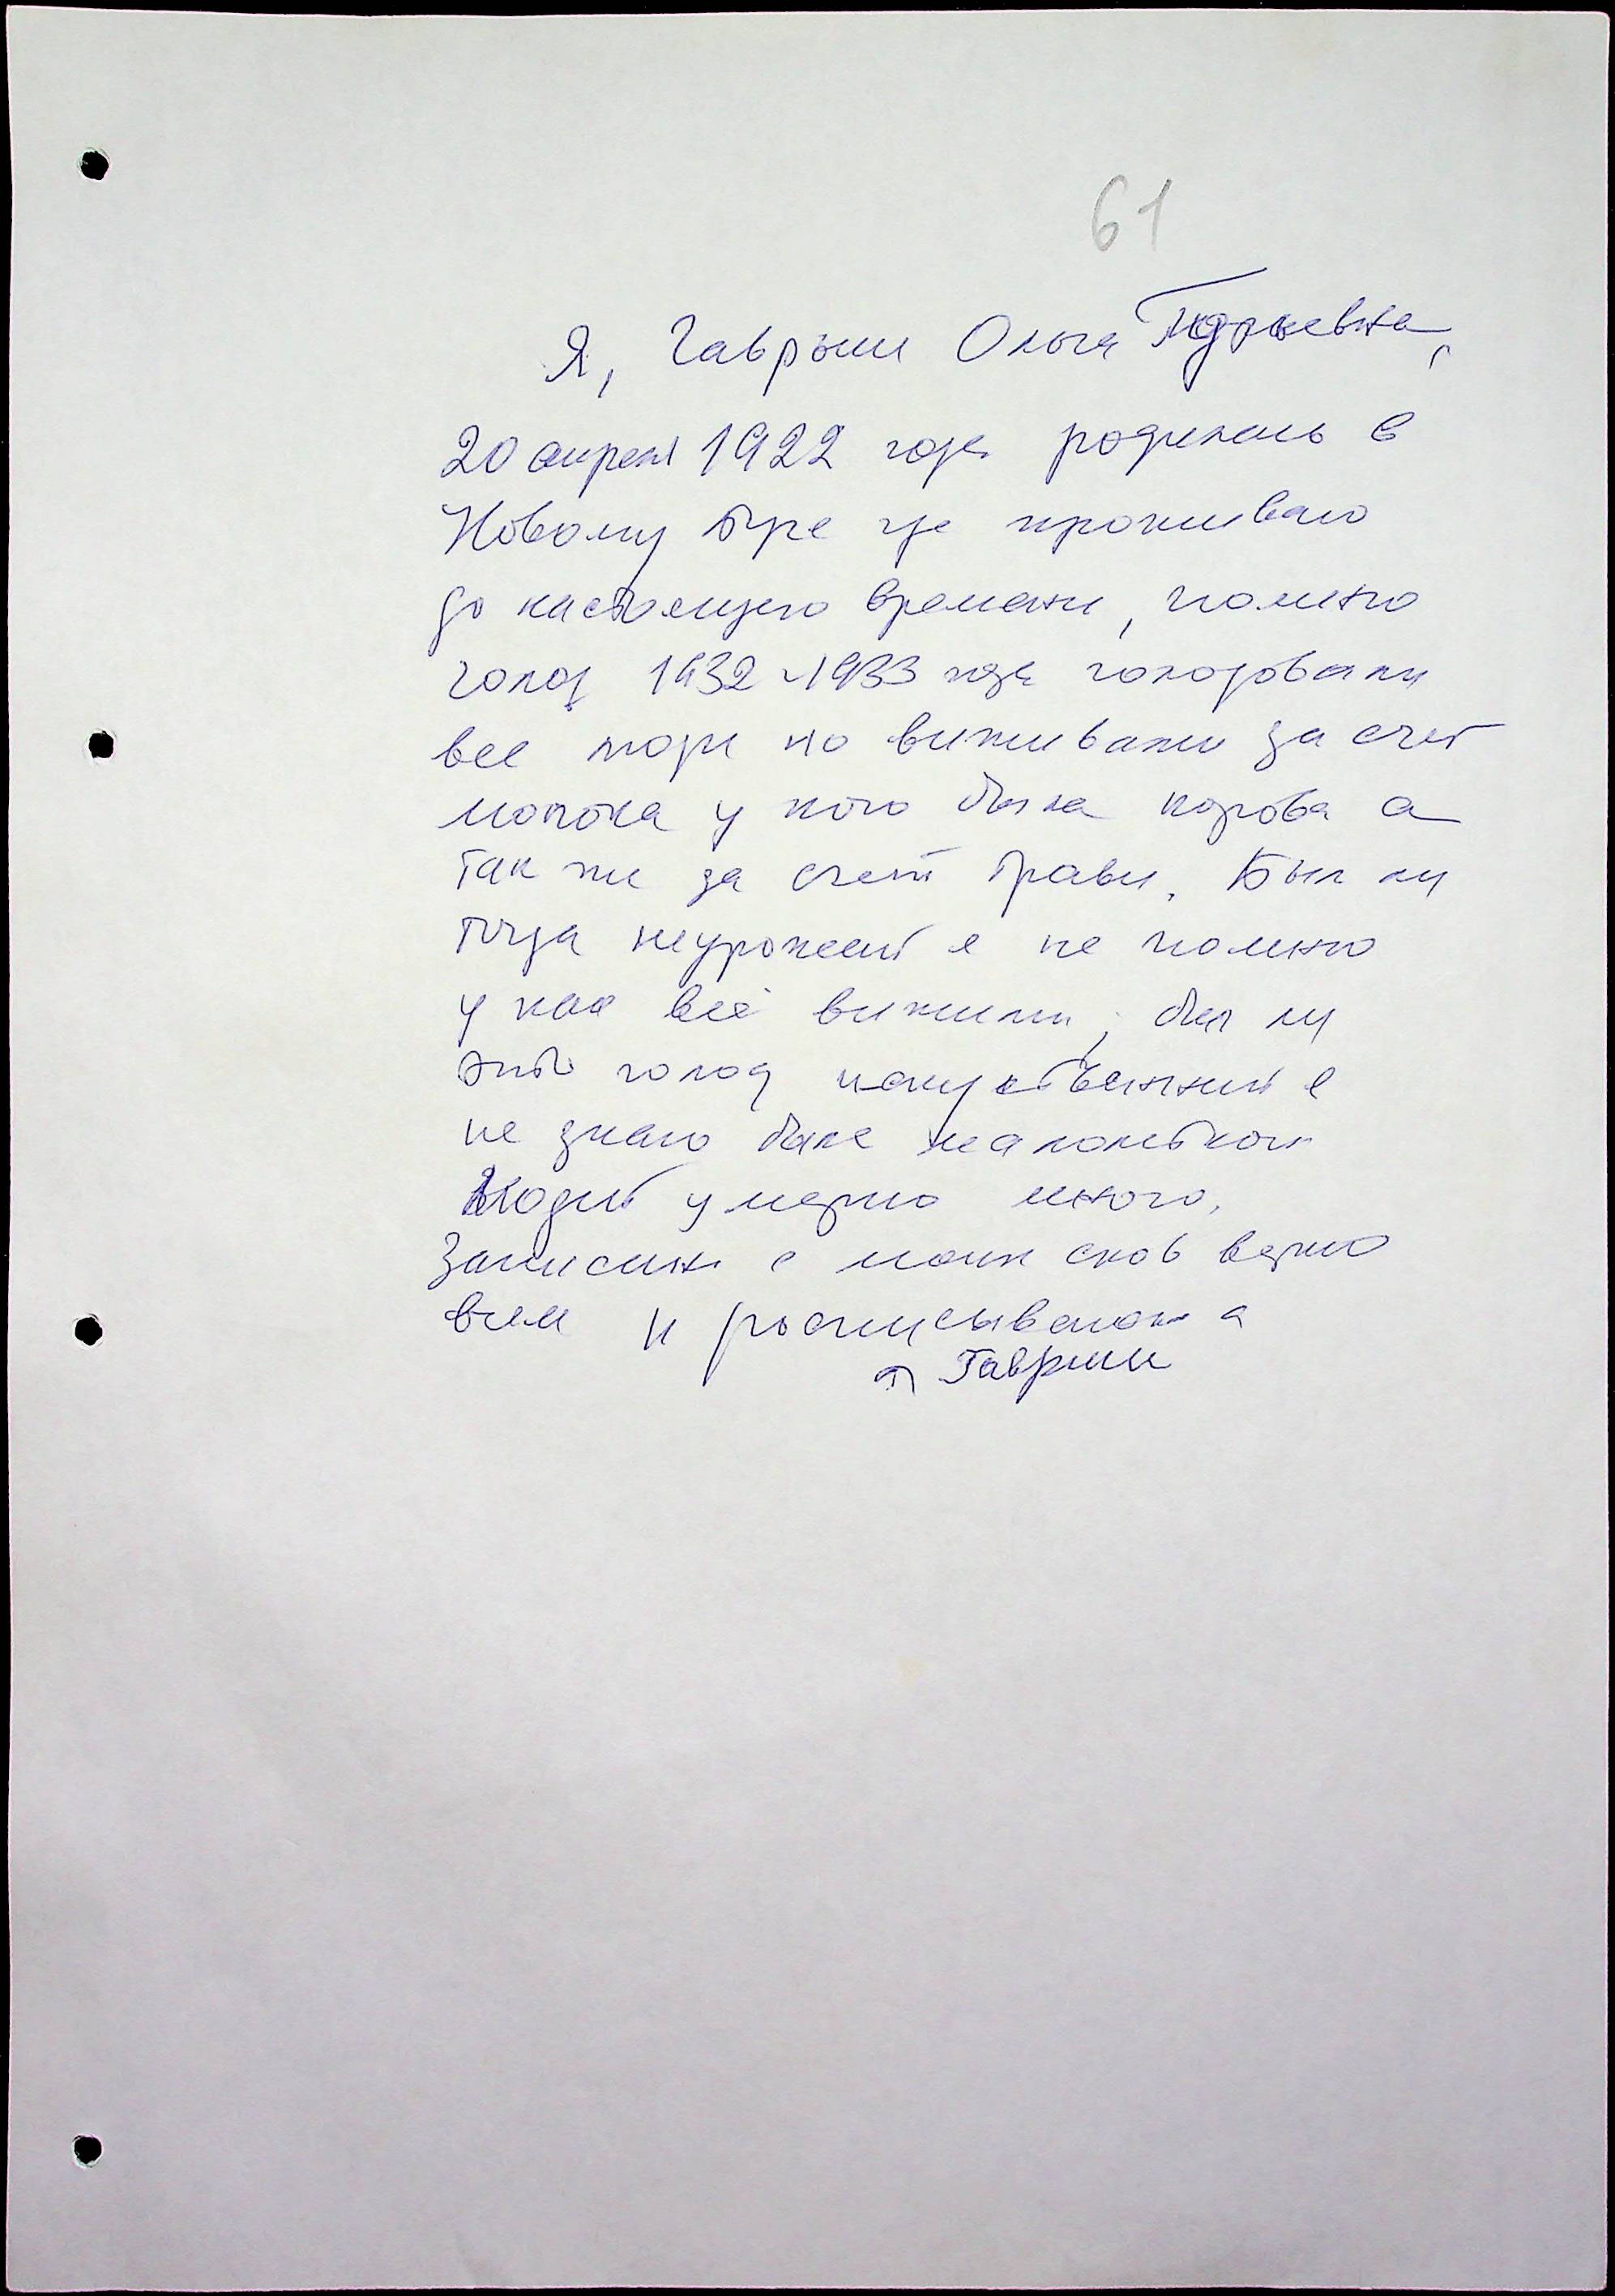 61
Я, Гаврыш Ольга
20 апреля 1922 года родилась в
Новому Буге где проживаю
до настоящего времени, помню
голод 1932-1933 года голодовали
все люди но виживали за счет
молока у кого была корова а
так же за счет трави. Был ли
тогда неурожай я не помню
у нас всё вижили, был ли
этот голод искуственний я
не знаю была малолеткой
Людей умерло много.
Записано с моих слов верно
и росписываюсь
Гавриш